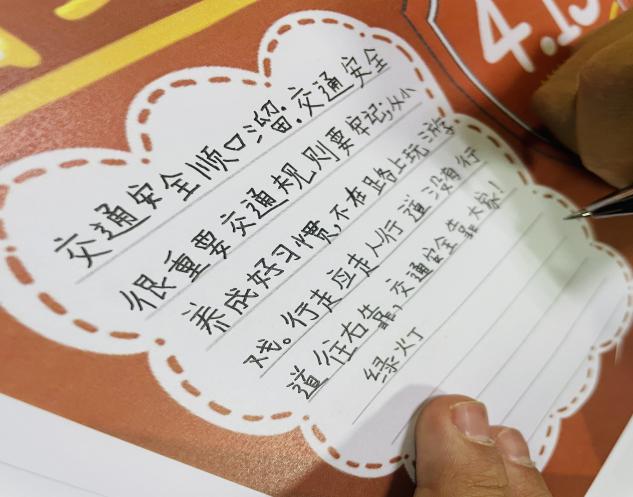 4.15
交通安全顺口溜:交通安全
很重要交通规则要牢记;从小
养成好习惯,不在路上玩游
戏。行走应走人行道没有行
道往右靠,交通安全靠大家!
绿火丁